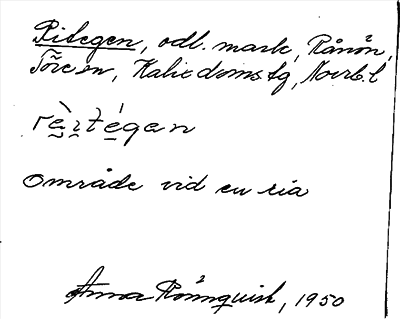 Ritegen, odl. mark, Rånön,
Töre sn, Kalix domstg, Norrb. l
område vid en ria
Anna Rönnquist, 1950